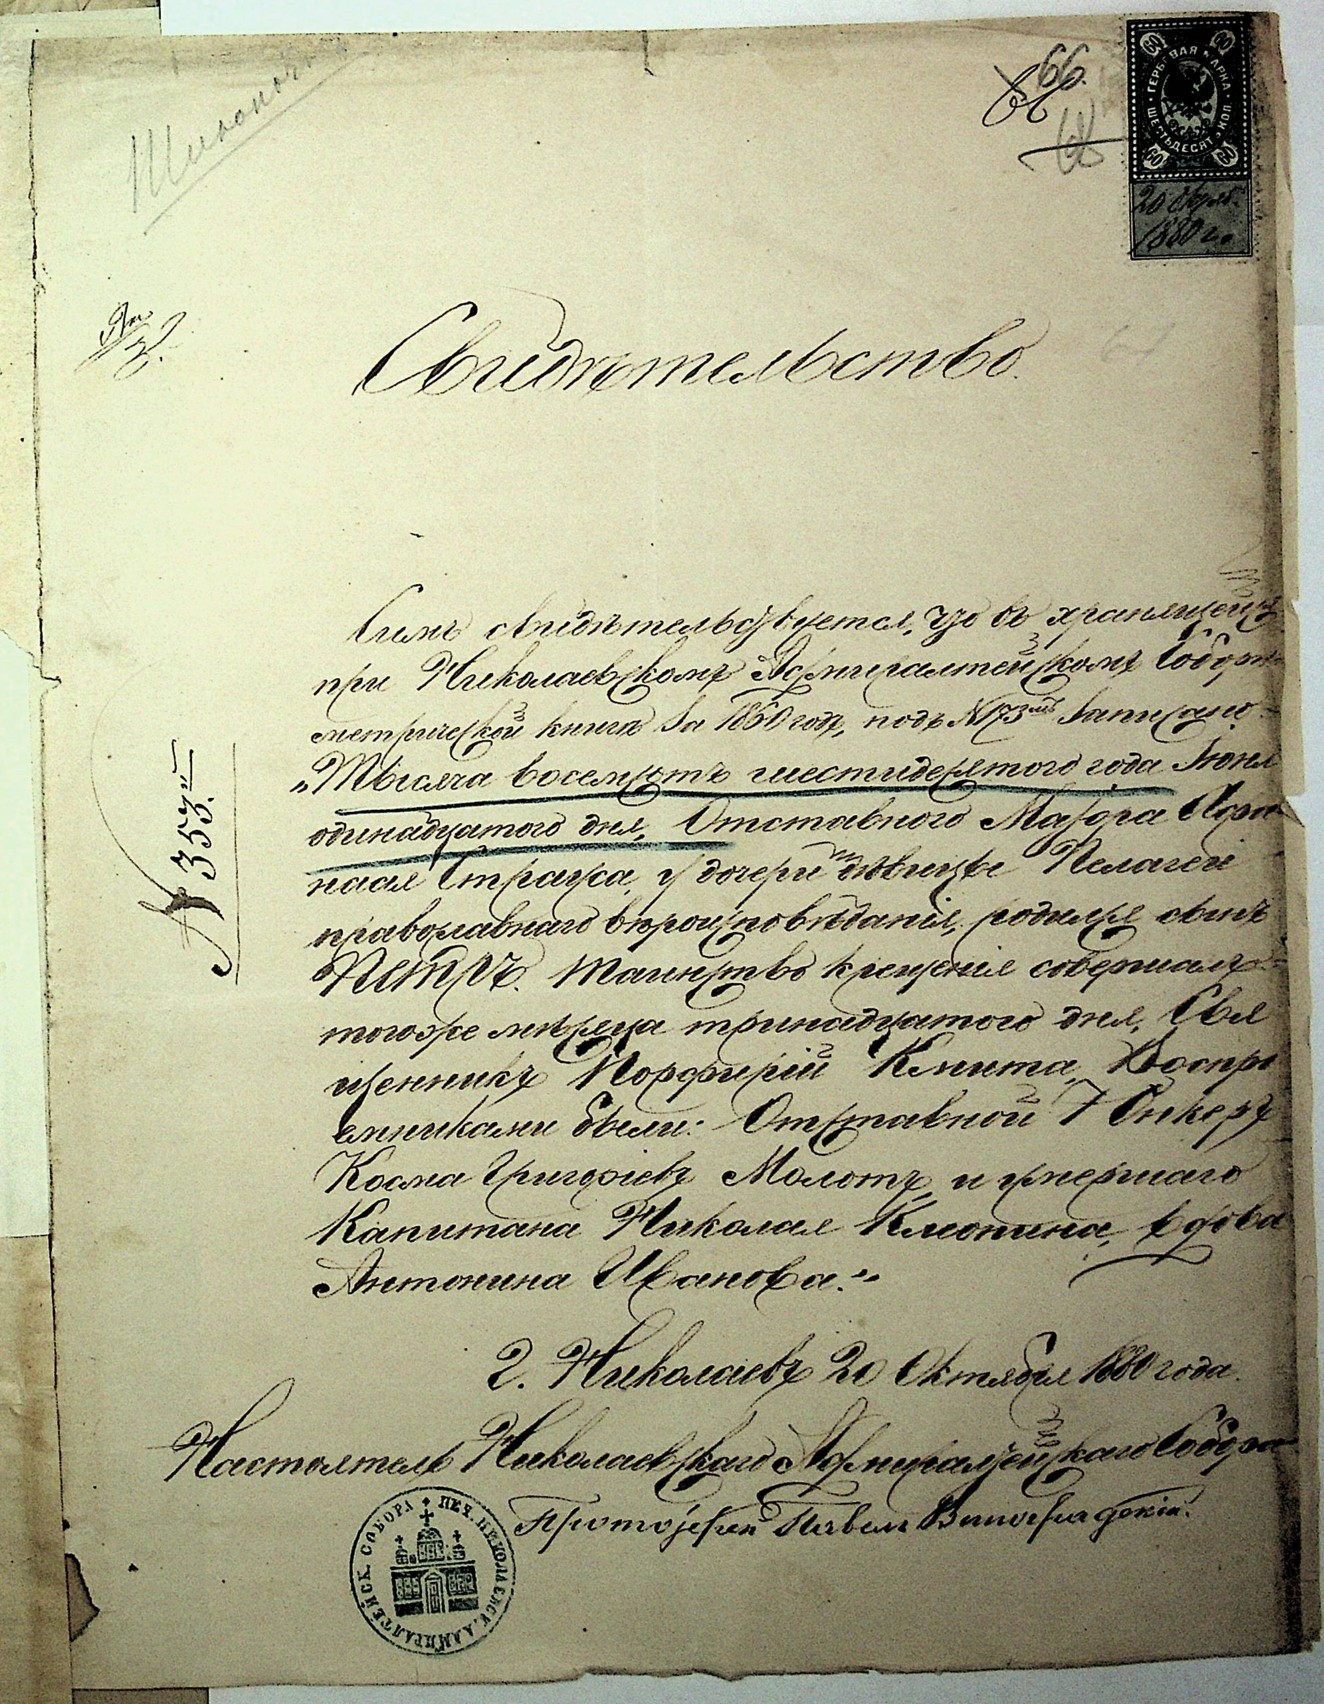 66.
68
60 60
ГЕРБОВАЯ МАРКА
ШЕСТЬДЕСЯТ КОП
60 60
20 Октяб.
1880 г.
Свидѣтельство.
Симъ свидѣтельствуется, что въ хранящейся
при Николаевскомъ Адмиралтейскомъ Соборѣ
метрической книгѣ за 1860 годъ, подъ №173мъ записано:
„Тысяча восемсотъ шестидесятого года Іюня
одинадцатого дня, Отставного Маіора
Страха, у дочери дѣвицы Пелагеи
православнаго вѣроисповѣданія, родился сынъ
Петръ. Таинство крещенія совершалъ
тогоже мѣсяца тринадцатого дня, Свя
щенникъ Порфирій Кмита, Воспрі
емниками были: Отставной Юнкеръ
Косма Григоріевъ Молотъ, и умершаго
Капитана Николая Клопина, вдова
Антонина Иванова.“
Г. Николаевъ 20 Октября 1880 года.
Настоятель Николаевскаго Адмиралтейскаго Собора
Протоіерей Павелъ Виноградскій.
№ 353.й
ПЕЧ. НИКОЛАЕВСК. АДМИРАЛТЕЙСК. СОБОРА